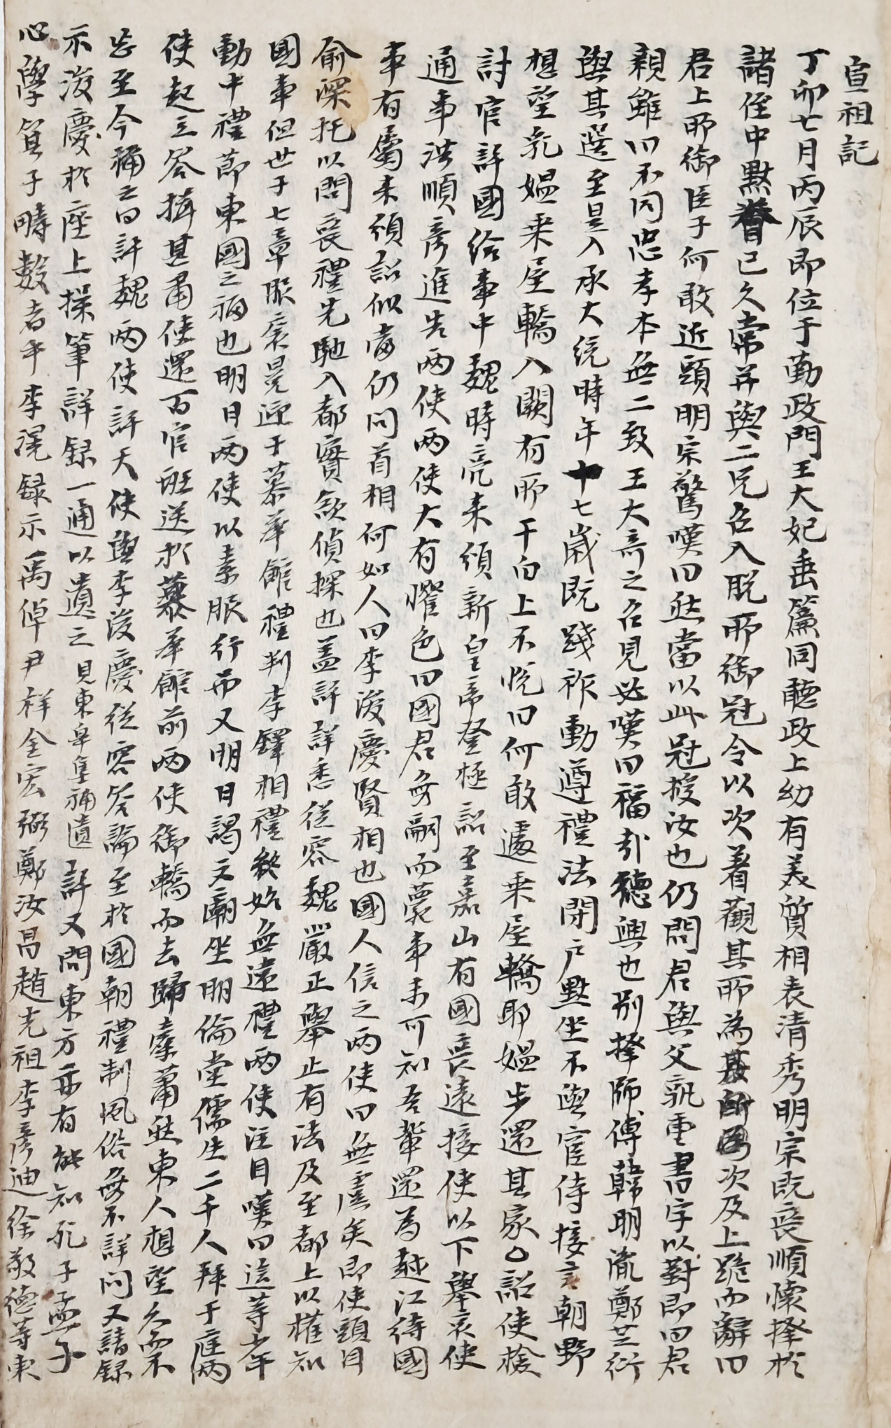 宣祖記
丁卯七月丙辰即位于勤政門王大妃垂簾同聽政上幼有美質相表清秀明宗既喪順懷擇於
諸侄中默眷已久常並與二兄召入脫所御冠令以次着觀其所為次及上跪而辭曰
君上所御臣子何敢近頭明宗驚嘆曰然當以此冠授汝也仍問君與父孰重書字以對即曰君
親雖曰不同忠孝本無二致王大奇之召見必嘆曰福哉德興也別擇師傅韓明胤鄭芝衍
與其選至是入承大統時年十七歲既踐祚動遵禮法閉戶默坐不與宦侍接言朝野
想望乳媼乘屋轎入闕有所干白上不悅曰何敢遽乘屋轎耶媼步還其家○詔使檢
討官許國給事中魏時亮來頒新皇帝登極詔至嘉山有國喪遠接使以下舉哀使
通事洪順彥進告兩使兩使大有懼色曰國君無嗣而薨事未可知吾輩還為越江待國
事有屬來頒詔似當仍問首相何如人曰李浚慶賢相也國人信之兩使曰無虞矣即使頭目
俞深托以問喪禮先馳入都實欲偵探也蓋許詳悉從容魏嚴正舉止有法及至都上以權知
國事但世子七章服袞冕迎于慕華館禮判李鐸相禮終始無違禮兩使注目嘆曰這等少年
動中禮節東國之福也明日兩使以素服行吊又明日謁文廟坐明倫堂儒生二千人拜于庭兩
使起立答揖甚肅使還百官班送於慕華館前兩使御轎而去歸橐蕭然東人想望久而不
忘至今稱之曰許魏兩使許天使與李浚慶從容答論至於國朝禮制風俗無不詳問又請錄
示浚慶於座上操筆詳錄一通以遺之見東皐集補遺許又問東方亦有能知孔子孟子
心學箕子疇數者乎李滉錄示禹倬尹祥金宏弼鄭汝昌趙光祖李彥迪徐敬德等東